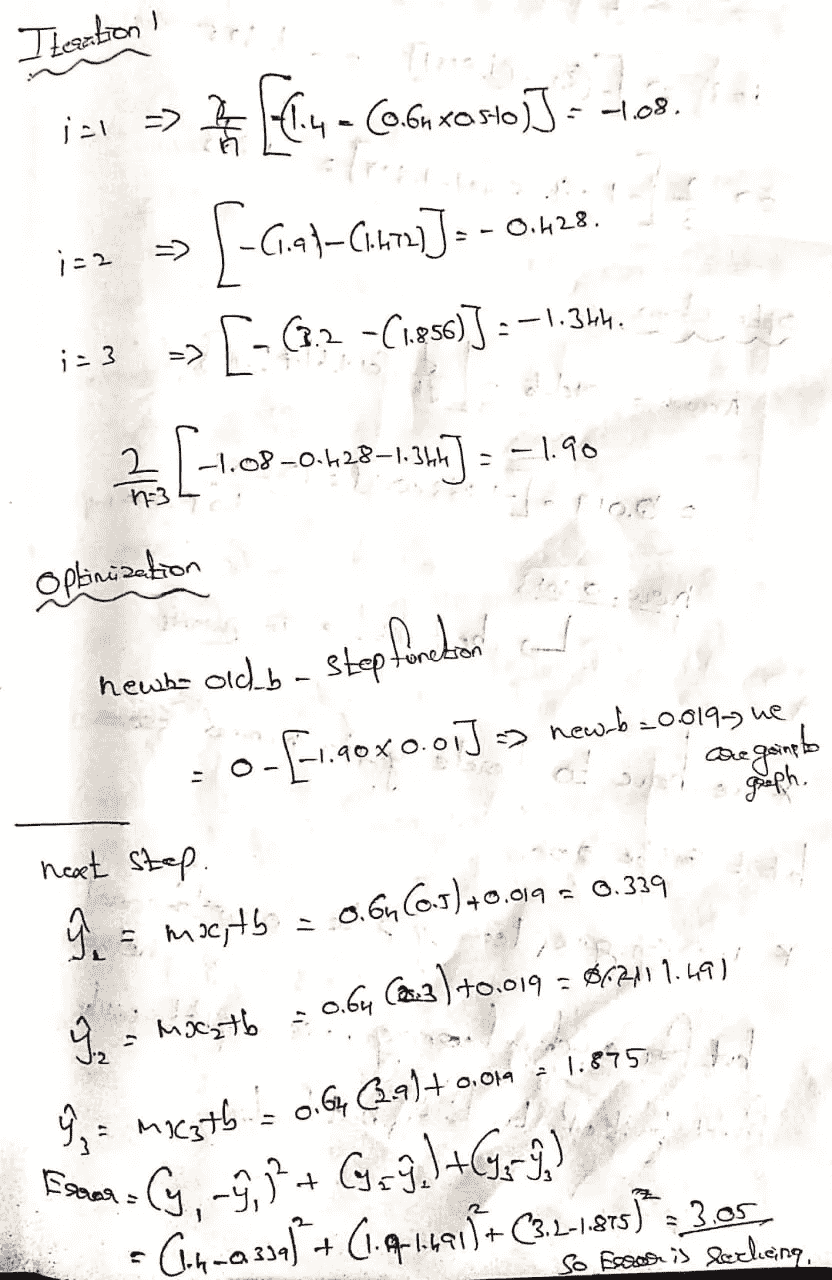 Iteration 1
i=1 => 2/n [-(1.4 - (0.64 x 0.5+0)] = -1.08.
i=2 => [-(1.9)-(1.472)] = -0.428.
i=3 => [-(3.2 -(1.856)] = -1.344.
2/n=3 [-1.08-0.428-1.344] = -1.90
Optimization
newb= old_b - step function
= 0-[-1.90x0.01] => new-b = 0.019 → we
are going to
graph.
next step.
ŷ₁ = mx₁+b = 0.64(0.5)+0.019 = 0.339
ŷ₂ = mx₂+b = 0.64(2.3)+0.019 = 1.491
ŷ₃ = mx₃+b = 0.64(2.9)+0.019 = 1.875
Error = (y₁-ŷ₁)² + (y₂-ŷ₂)+(y₃-ŷ₃)
= (1.4-0.339)² + (1.9-1.491)² + (3.2-1.875)² = 3.05
So Error is